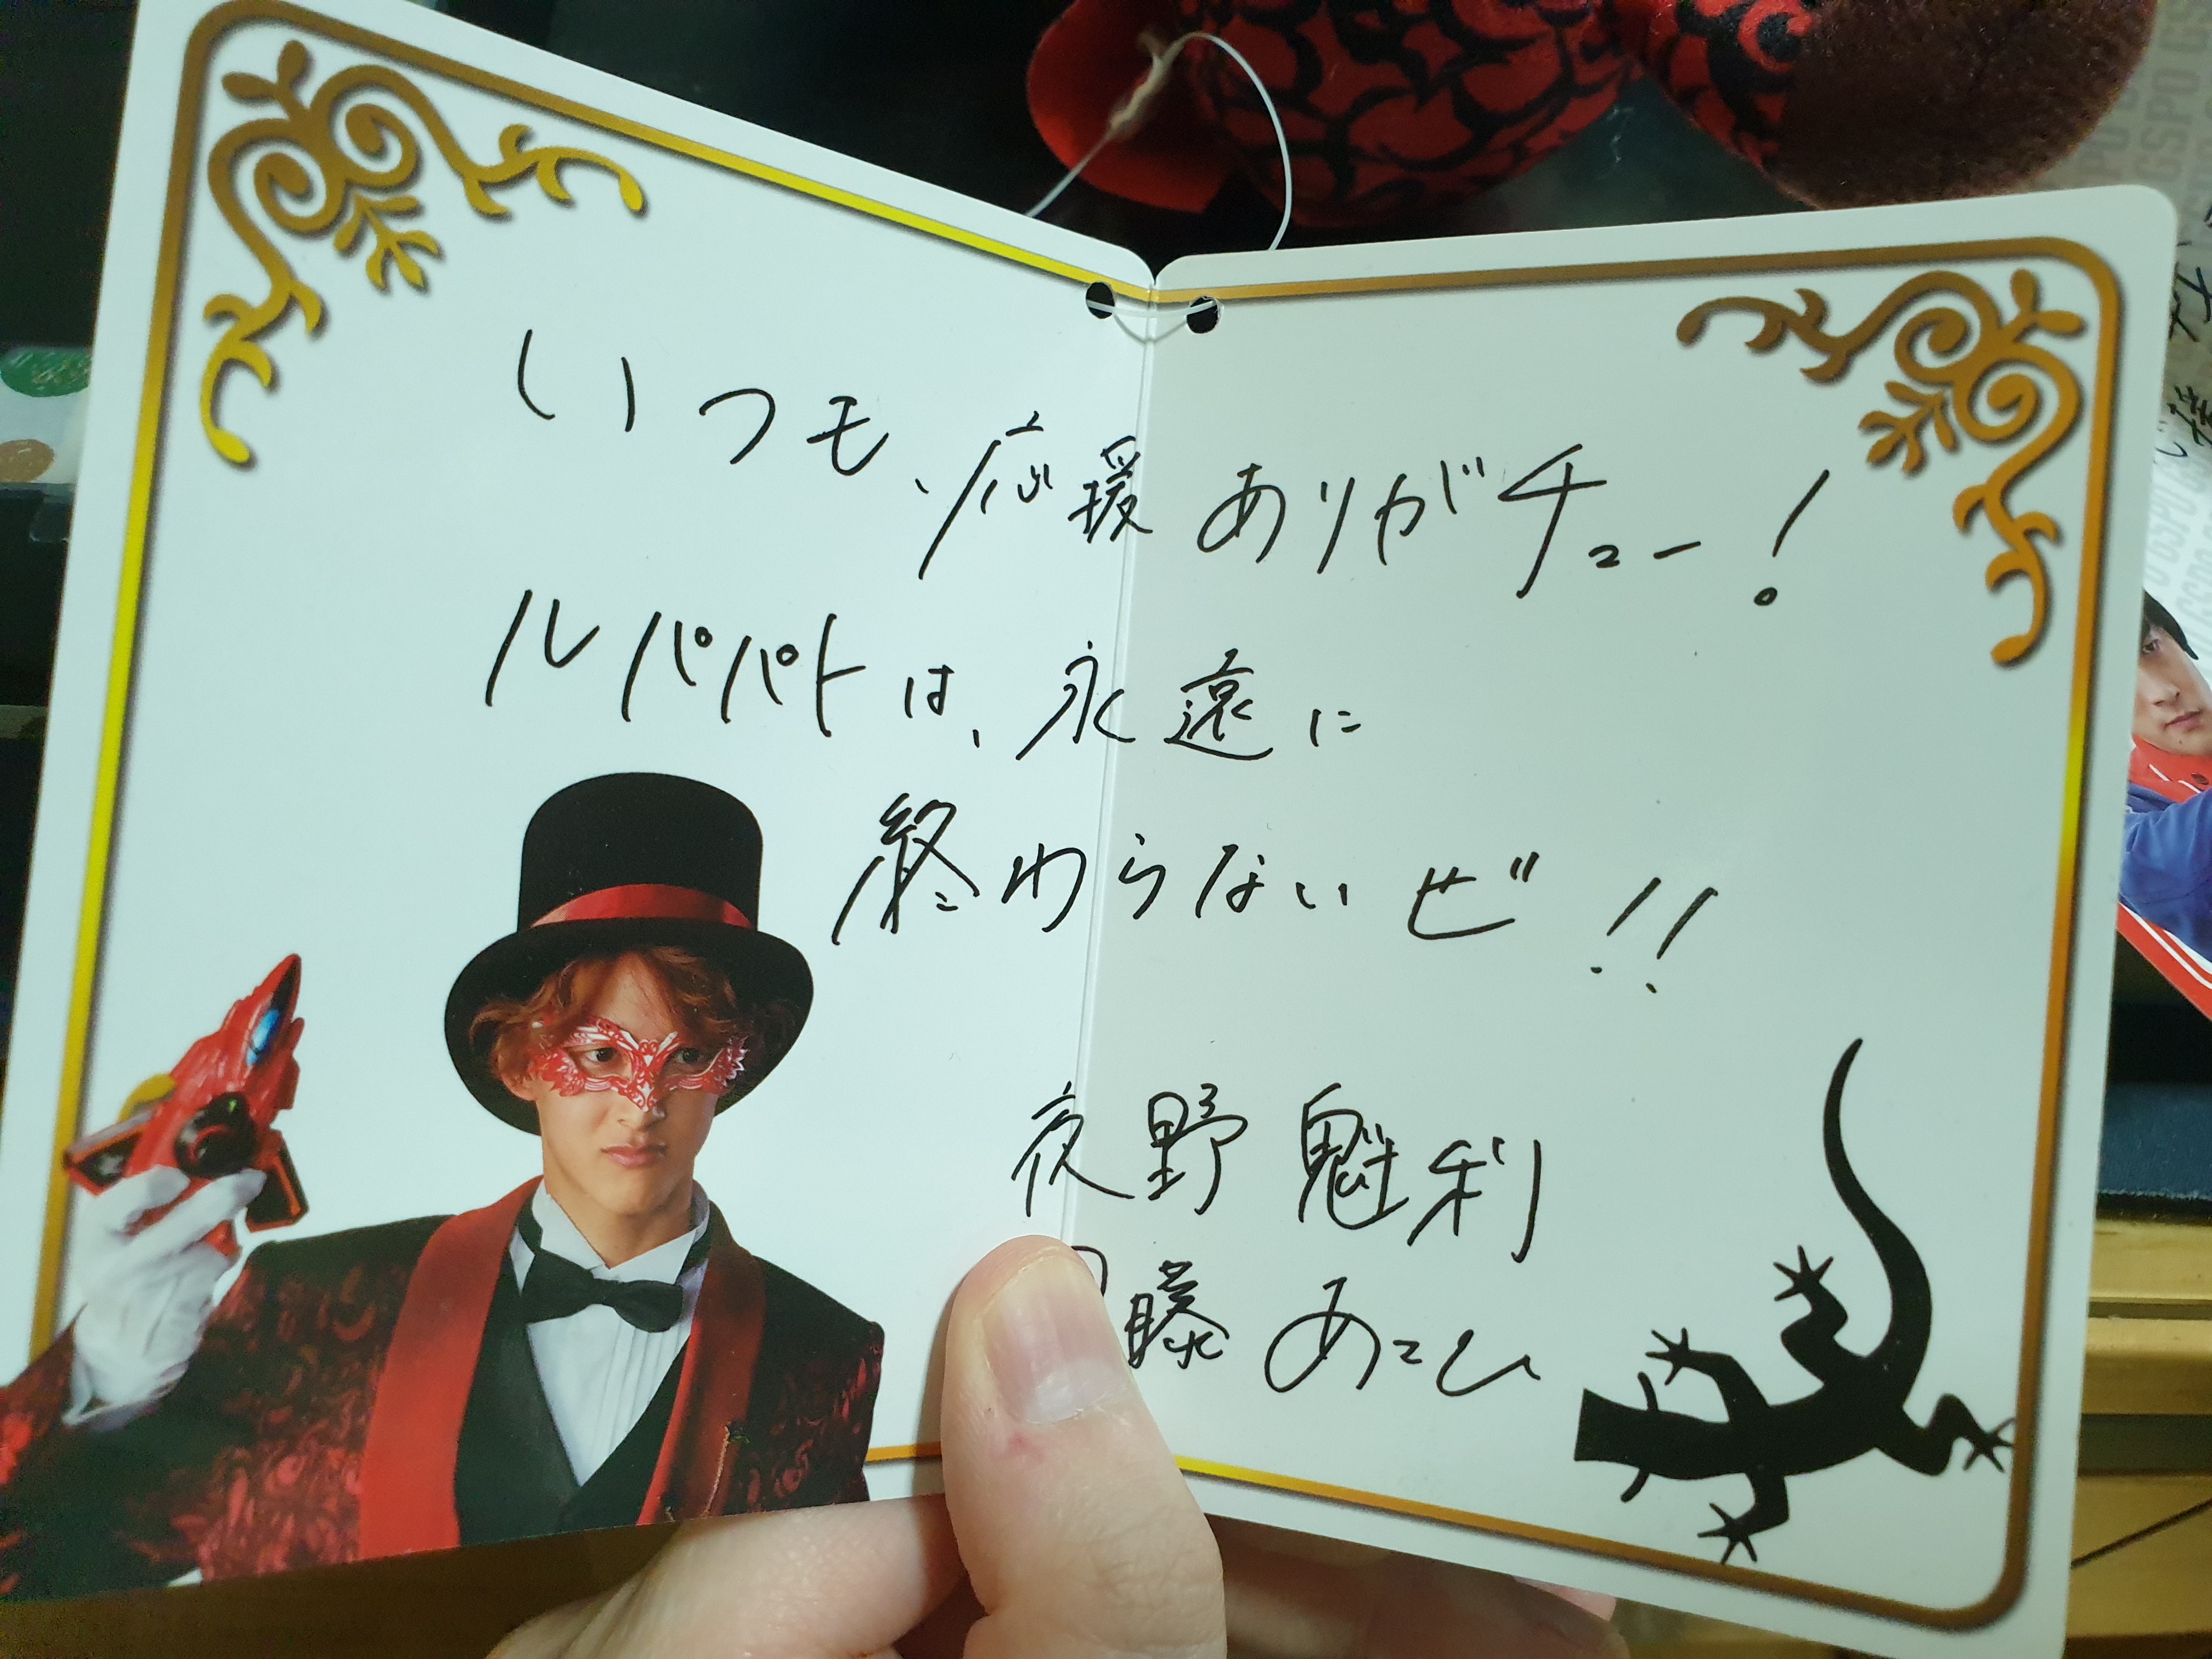 いつも、応援ありがチュー!
ルパパトは、永遠に
終わらないぜ!!
夜野魁利
藤あさひ
GSPO